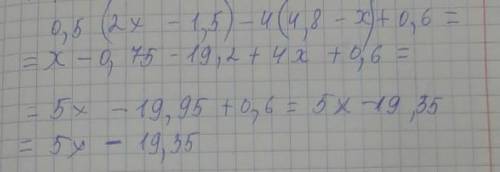 0,5 (2x - 1,5) - 4(4,8 - x) + 0,6 =
= x - 0,75 - 19,2 + 4x + 0,6 =
= 5x - 19,95 + 0,6 = 5x - 19,35
= 5x - 19,35